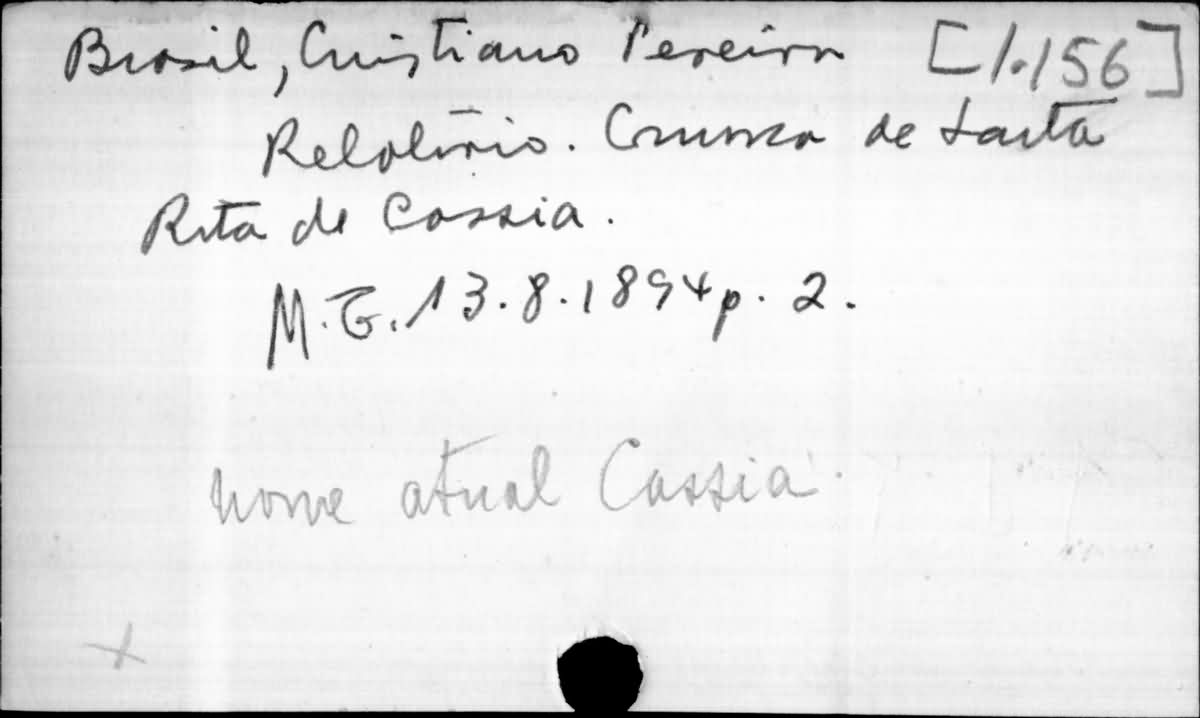 Brasil, Cristiano Pereira [1.156]
Relatório. Comarca de Santa
Rita de Cassia.
M.G. 13.8.1894 p. 2.
nome atual Cassia.
X